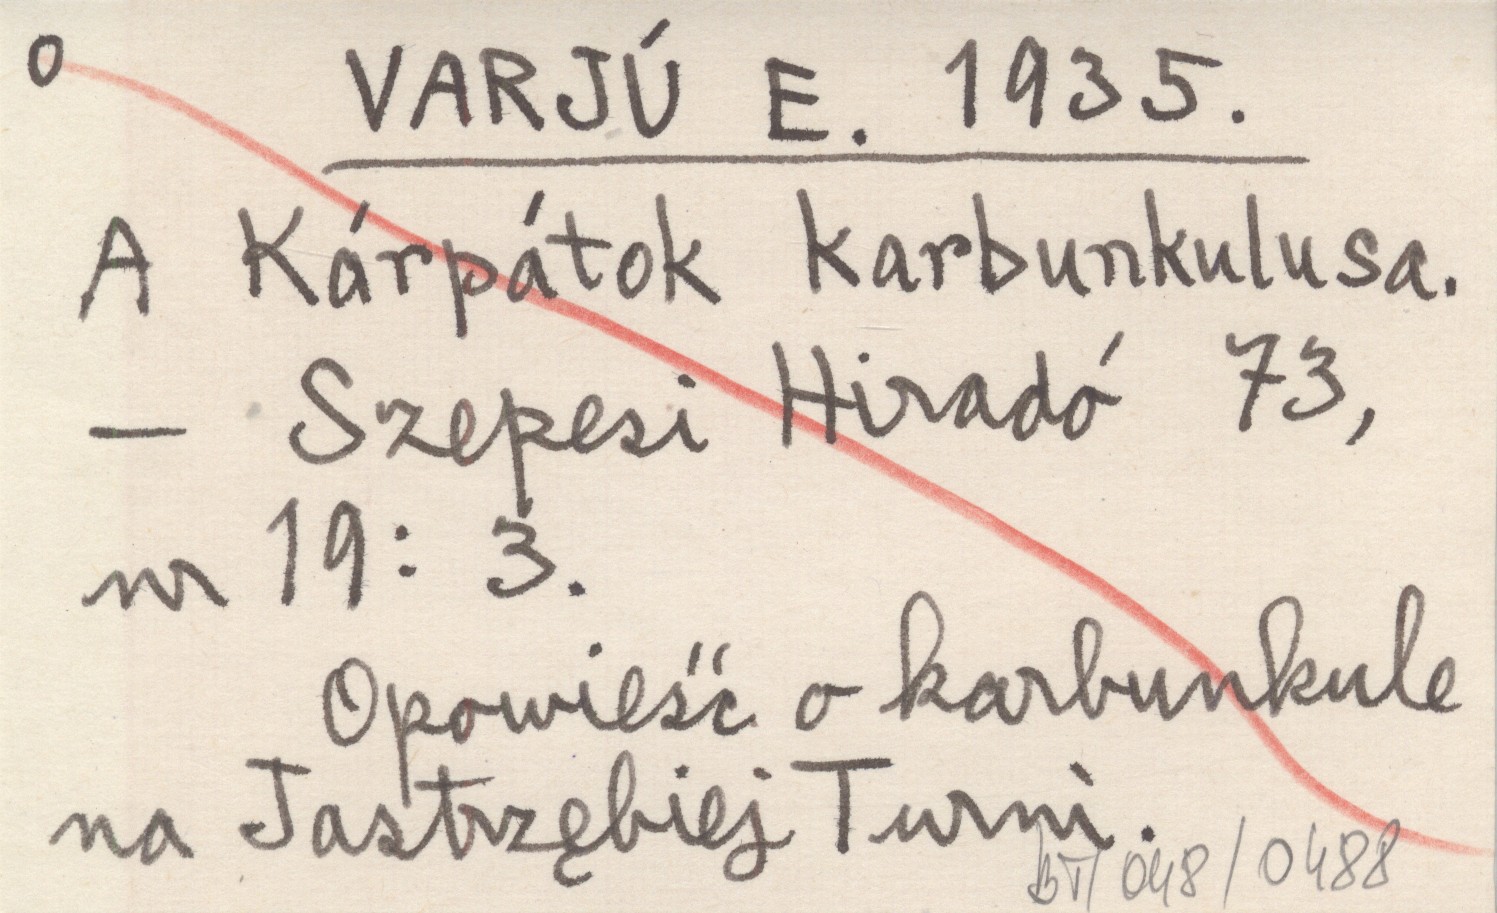 o
VARJÚ E. 1935.
A Kárpátok karbunkulusa.
— Szepesi Hiradó 73,
nr 19: 3.
Opowieść o karbunkule
na Jastrzębiej Turni.
BT/048/0488